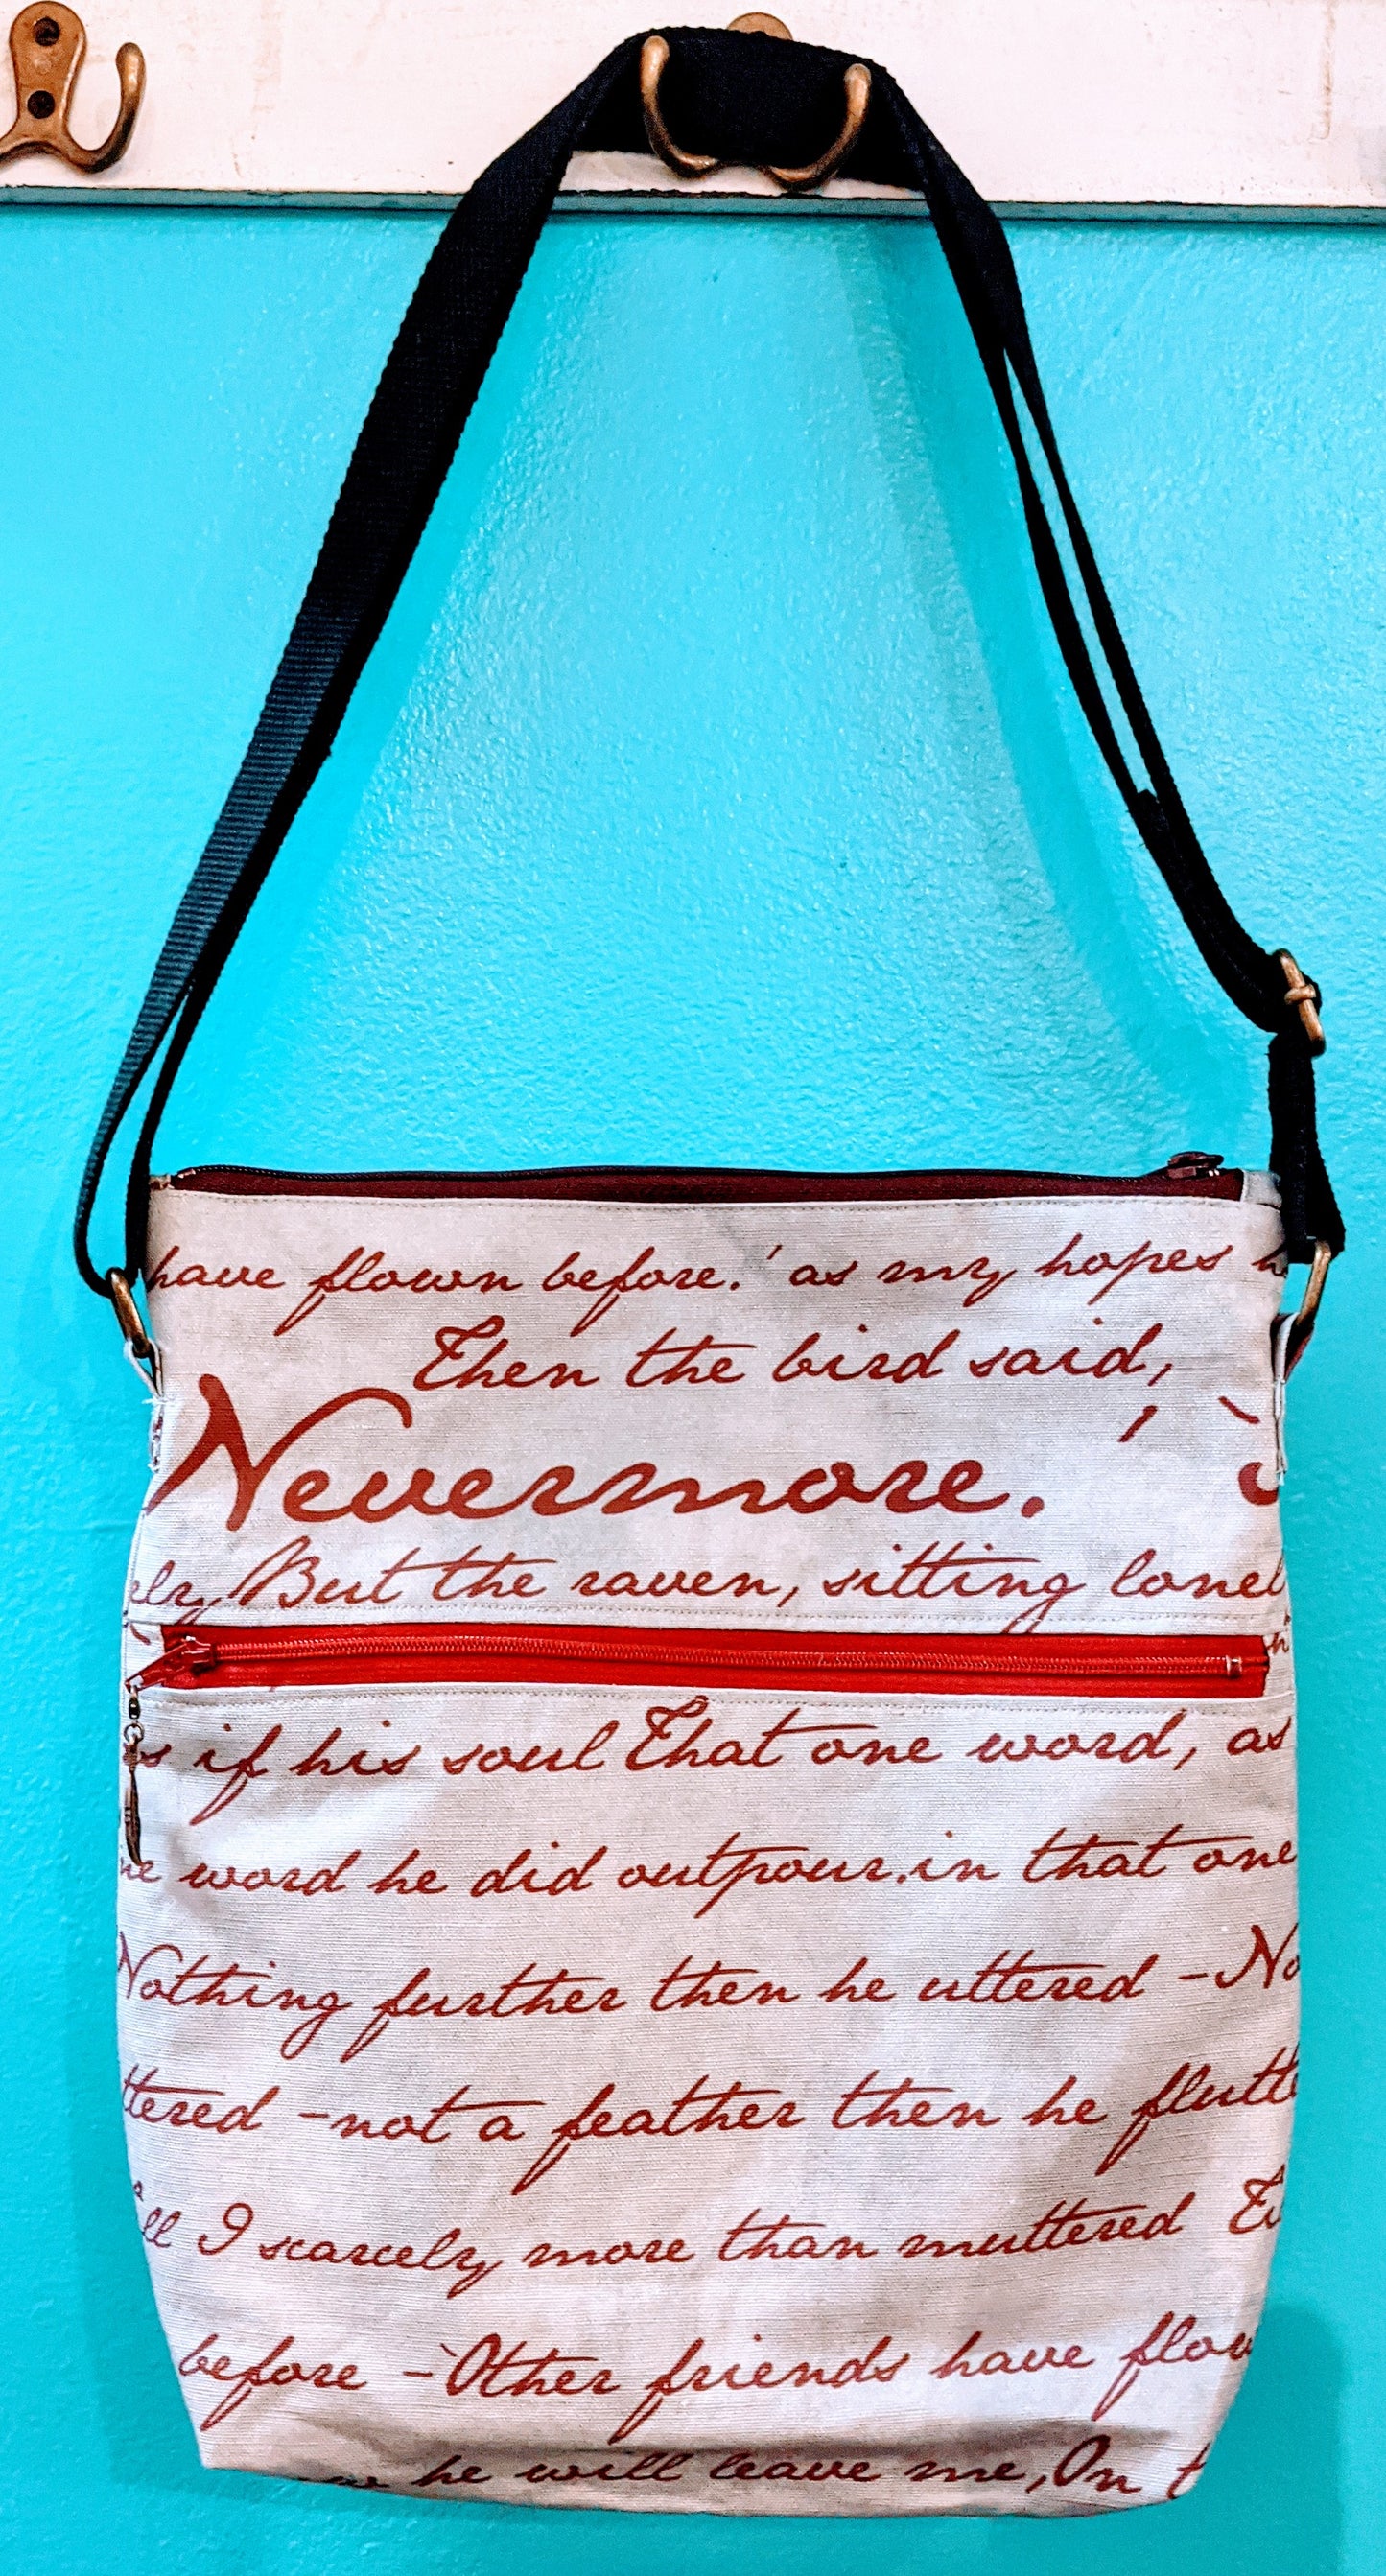 have flown before.' as my hopes
Then the bird said,
Nevermore.'
But the raven, sitting lonel
s if his soul That one word, as
ne word he did outpour. in that one
Nothing further then he uttered - No
ttered - not a feather then he flutte
ll I scarcely more than muttered Ti
before - 'Other friends have flow
he will leave me, On t